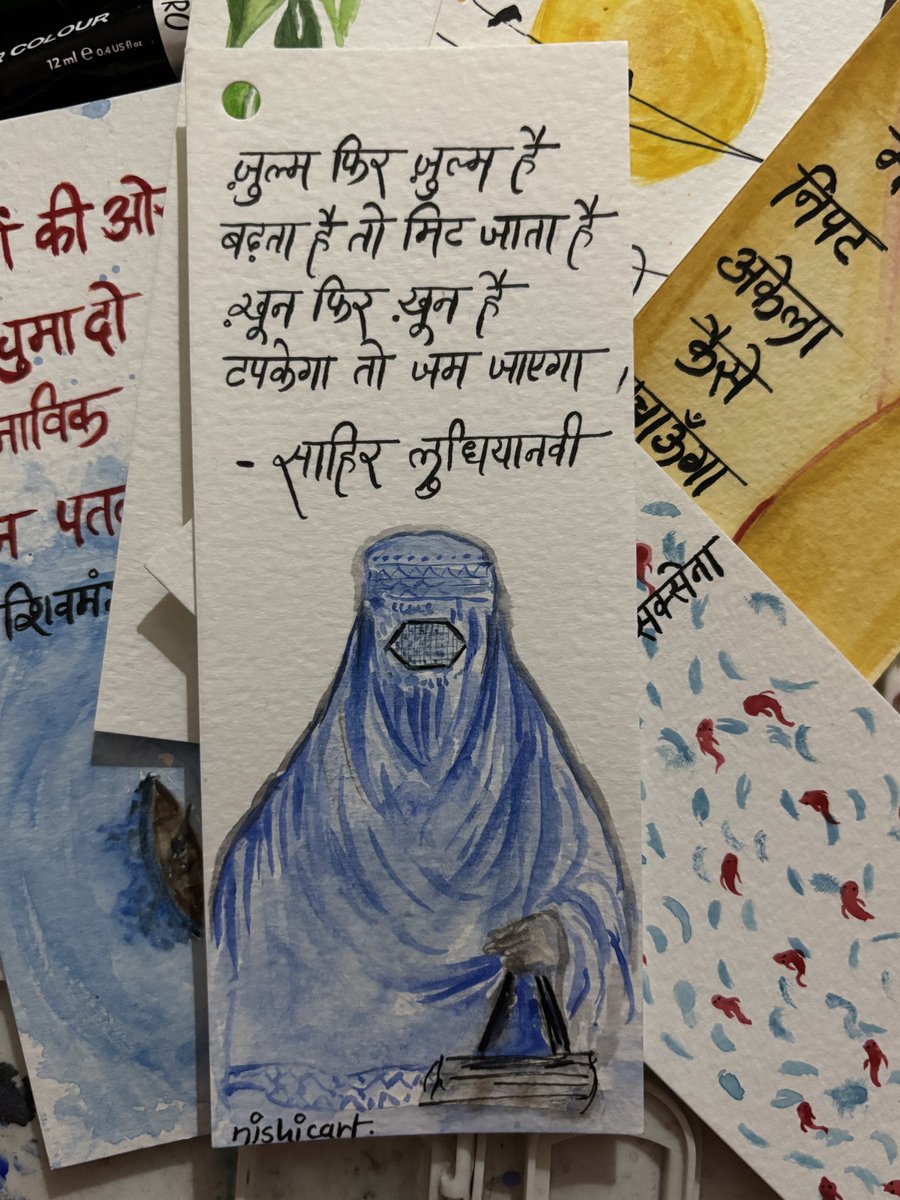 R COLOUR
12 ml e 0.4 US fl oz
RO
ज़ुल्म फिर ज़ुल्म है
बढ़ता है तो मिट जाता है
ख़ून फिर ख़ून है
टपकेगा तो जम जाएगा
- साहिर लुधियानवी
nishicart.
की ओ
घुमा दो
नाविक
शिवमं
निपट
अकेला
कैसे
सक्सेना